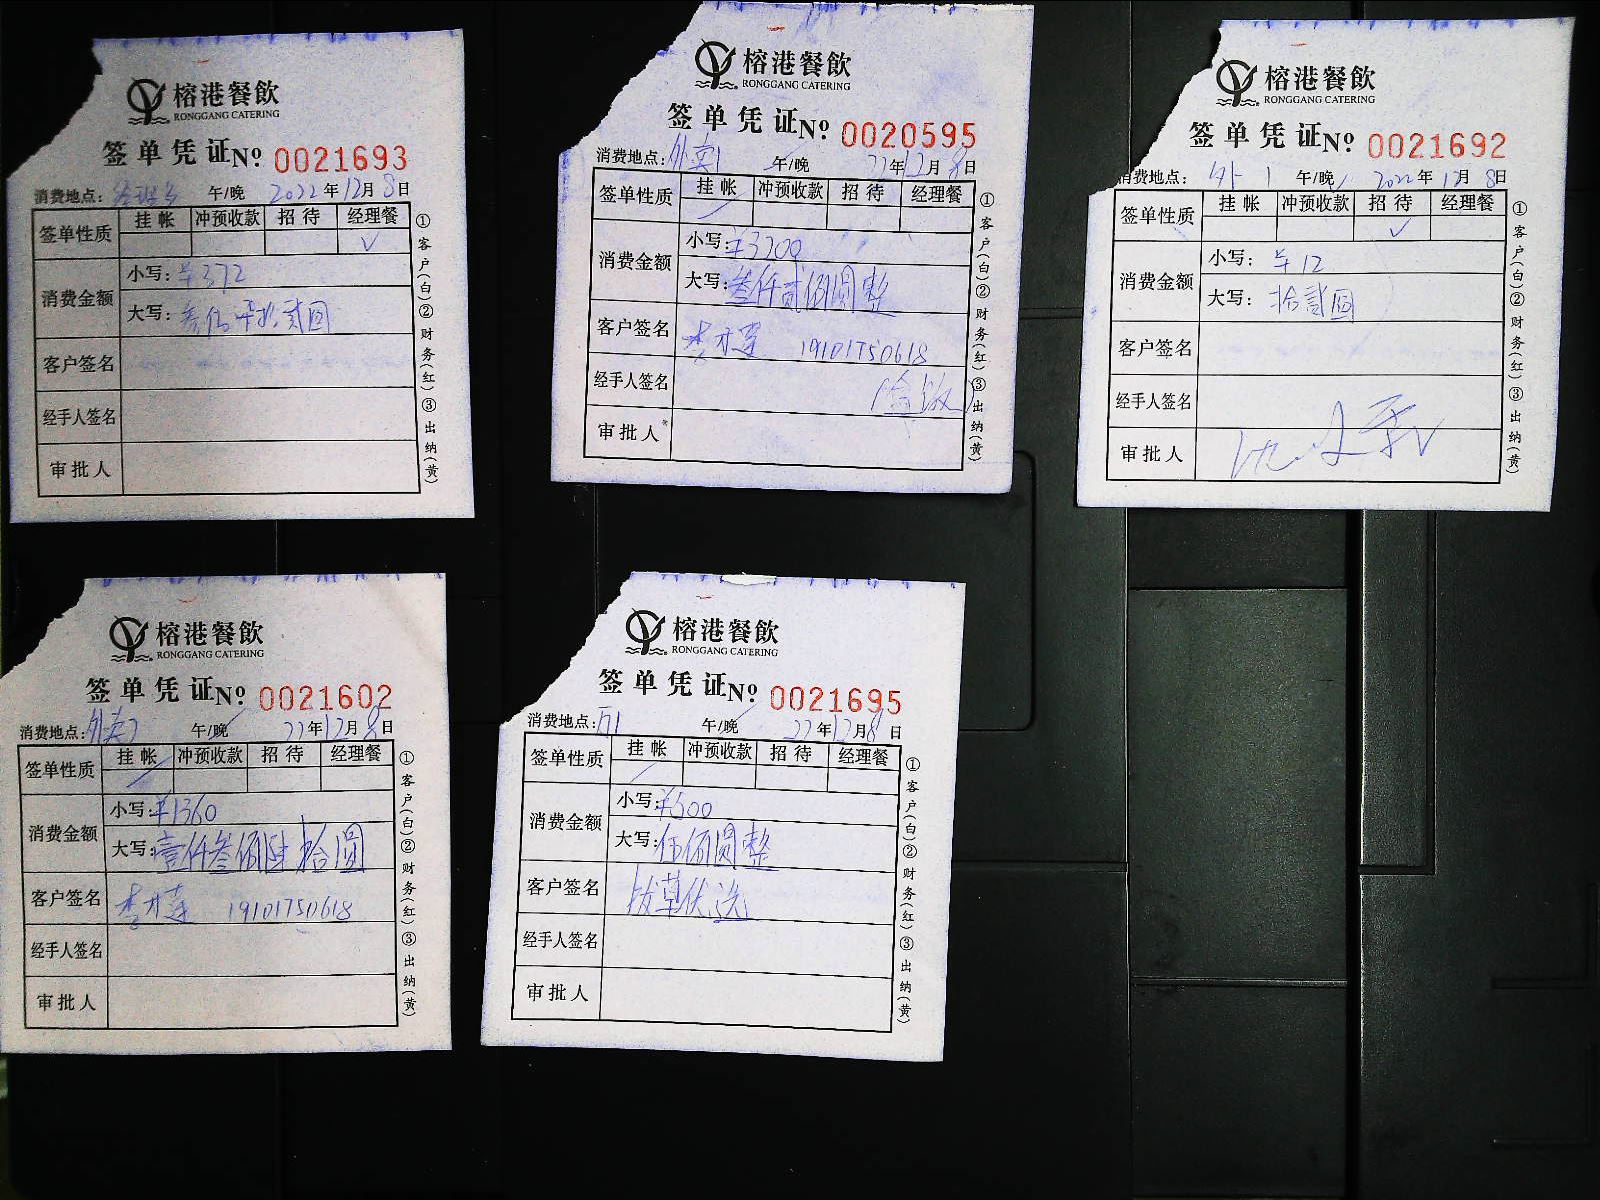 榕港餐飲
RONGGANG CATERING
签单凭证 № 0021693
消费地点： 午/晚 2022年12月8日
签单性质 挂帐 冲预收款 招待 经理餐
√
消费金额 小写：¥372
大写：
客户签名
经手人签名
审批人
①客户(白)②财务(红)③出纳(黄)
榕港餐飲
RONGGANG CATERING
签单凭证 № 0020595
消费地点：外卖1 午/晚 22年12月8日
签单性质 挂帐 冲预收款 招待 经理餐
消费金额 小写：¥3200
大写：叁仟贰佰圆整
客户签名 19101750618
经手人签名
审批人
①客户(白)②财务(红)③出纳(黄)
榕港餐飲
RONGGANG CATERING
签单凭证 № 0021692
消费地点：外1 午/晚 2022年12月8日
签单性质 挂帐 冲预收款 招待 经理餐
√
消费金额 小写：¥12
大写：拾贰圆
客户签名
经手人签名
审批人
①客户(白)②财务(红)③出纳(黄)
榕港餐飲
RONGGANG CATERING
签单凭证 № 0021602
消费地点：外卖2 午/晚 22年12月8日
签单性质 挂帐 冲预收款 招待 经理餐
消费金额 小写：¥1360
大写：壹仟叁佰陆拾圆
客户签名 19101750618
经手人签名
审批人
①客户(白)②财务(红)③出纳(黄)
榕港餐飲
RONGGANG CATERING
签单凭证 № 0021695
消费地点： 午/晚 22年12月8日
签单性质 挂帐 冲预收款 招待 经理餐
消费金额 小写：¥500
大写：伍佰圆整
客户签名 拔草优选
经手人签名
审批人
①客户(白)②财务(红)③出纳(黄)